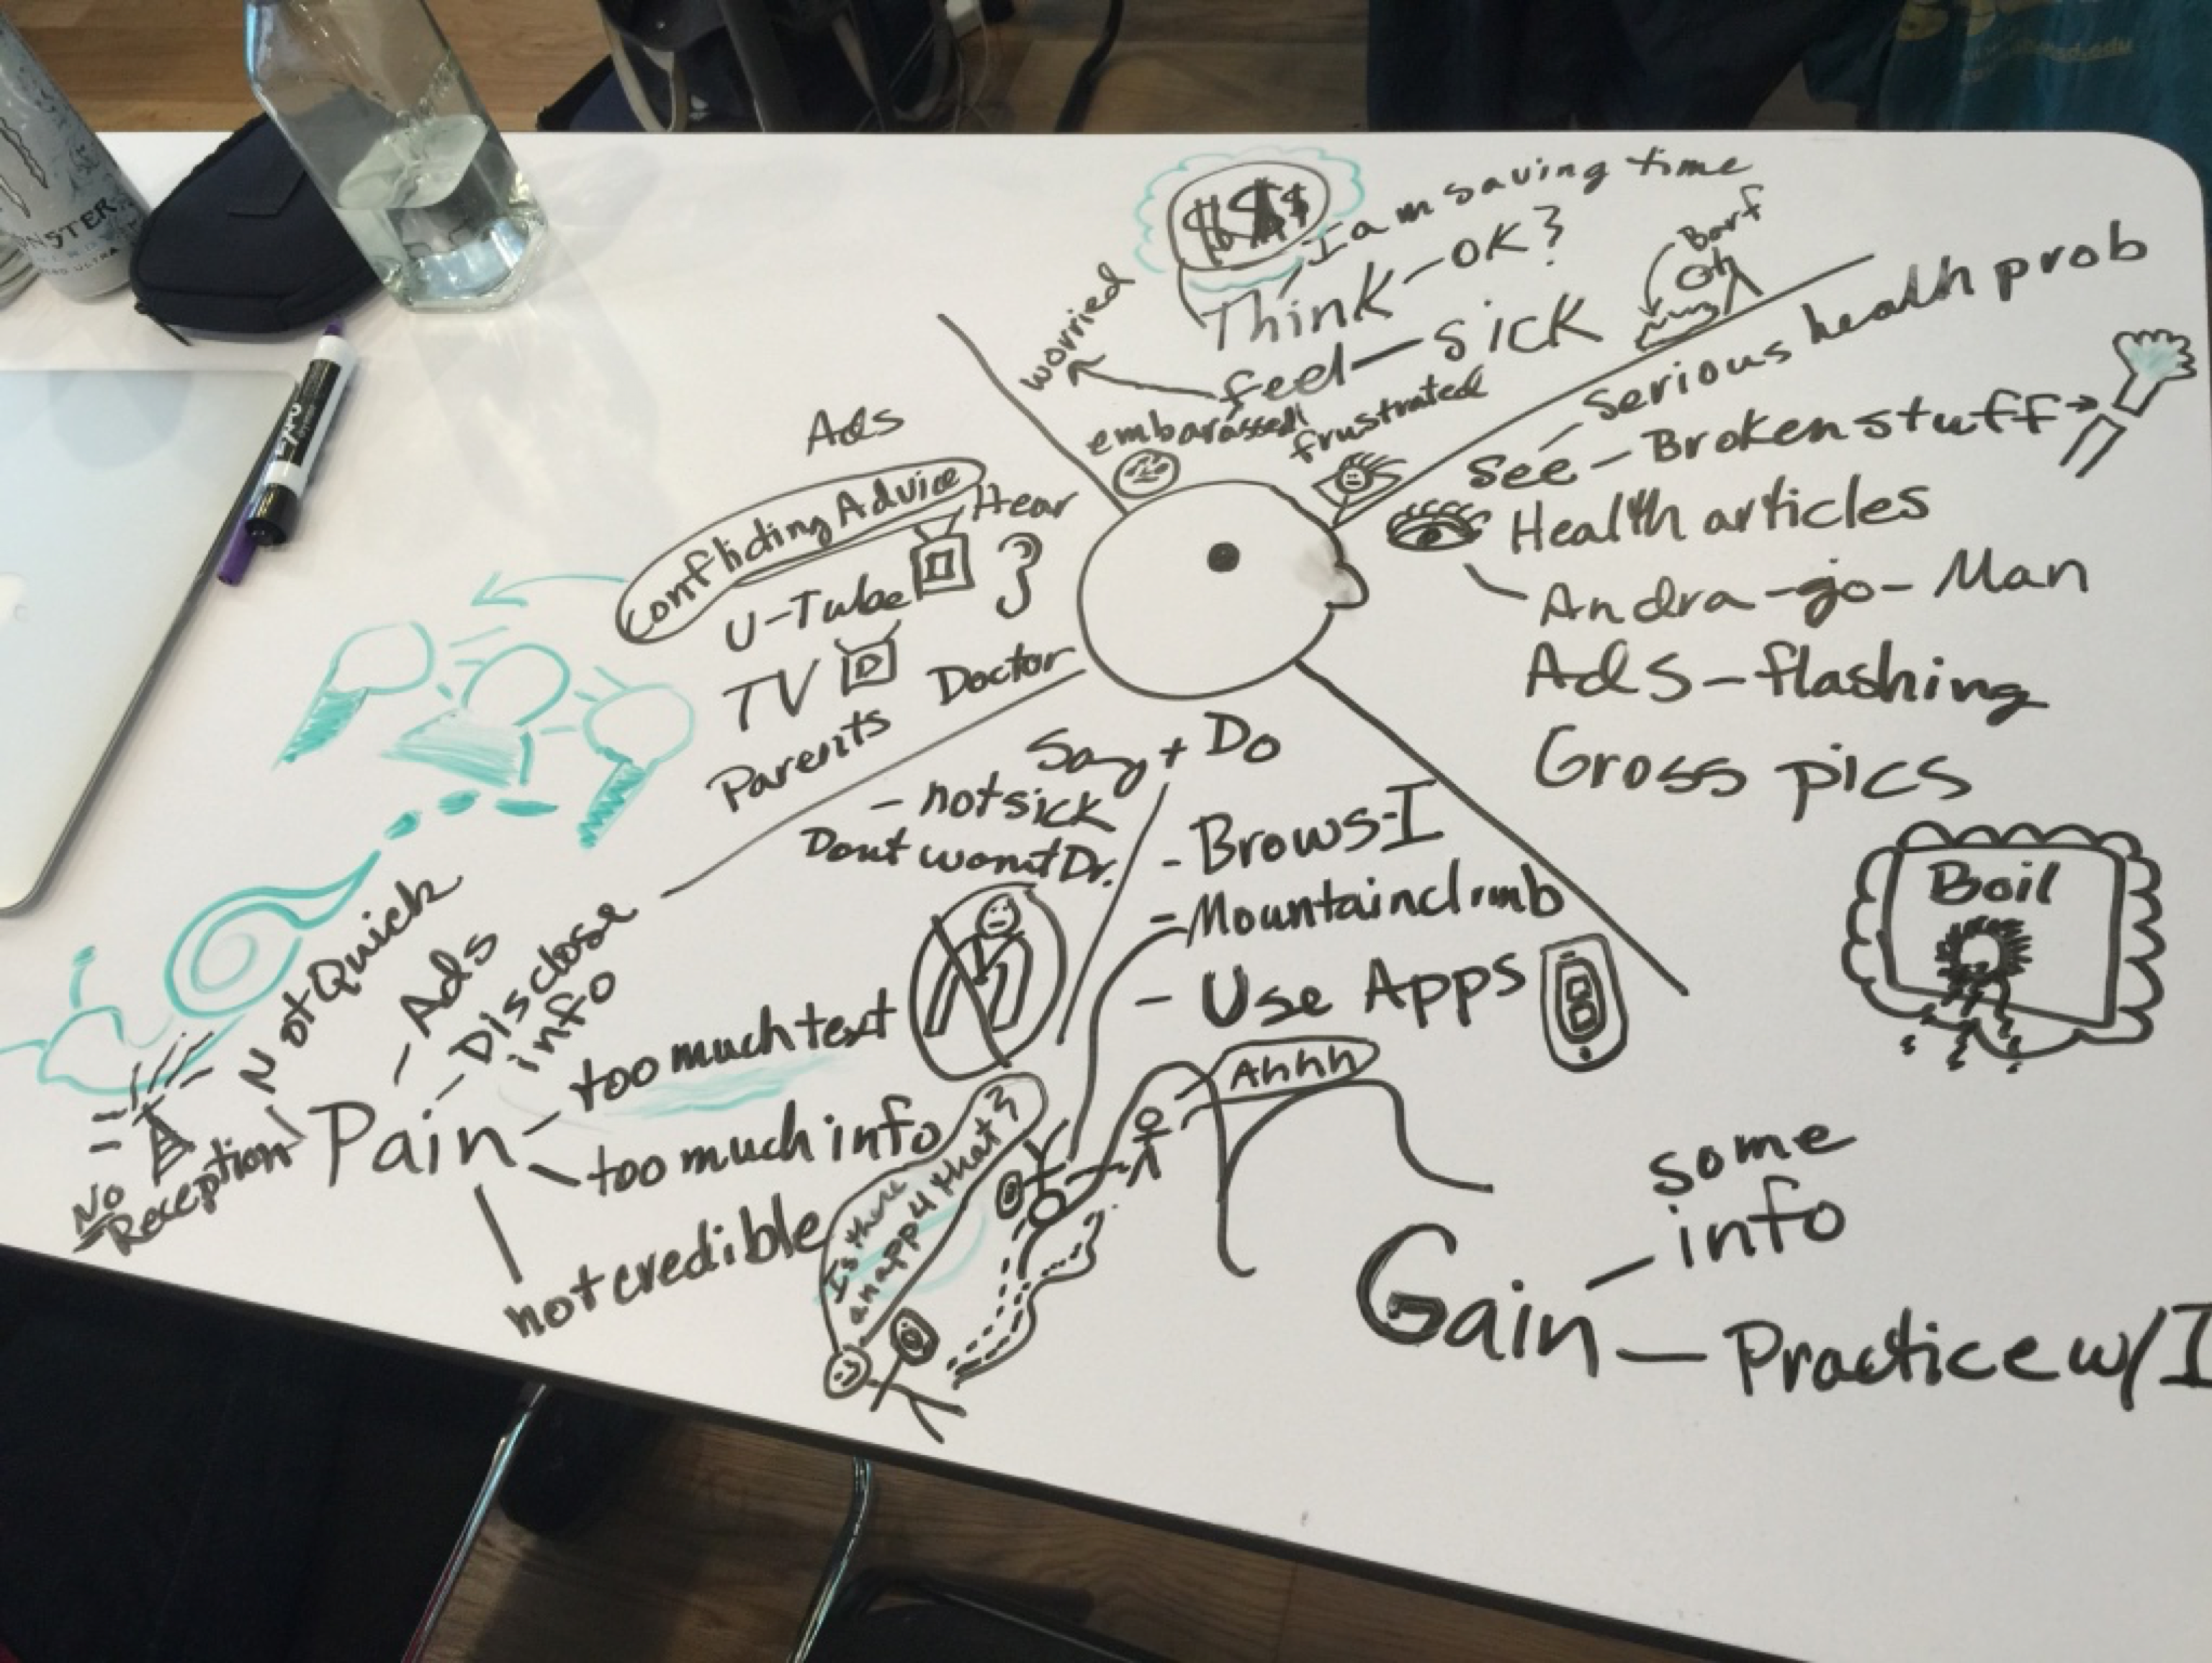 $$$
I am saving time
Think - OK?
Barf
worried
feel - sick
embarassed!
frustrated
- Serious health prob
See - Broken stuff
Health articles
Andra-go-Man
Ads - flashing
Gross pics
Boil
Ads
Conflicting Advice
Hear
U-Tube
TV
Doctor
Parents
Say + Do
- not sick
Dont want Dr.
- Brows-I
- Mountainclimb
- Use Apps
Ahhh
Is there
an app 4 that?
Not Quick
- Ads
- Disclose
info
No
Reception
Pain
- too much text
- too much info
not credible
Gain
- some
info
- Practice w/ I
MONSTER
ULTRA
EXPO